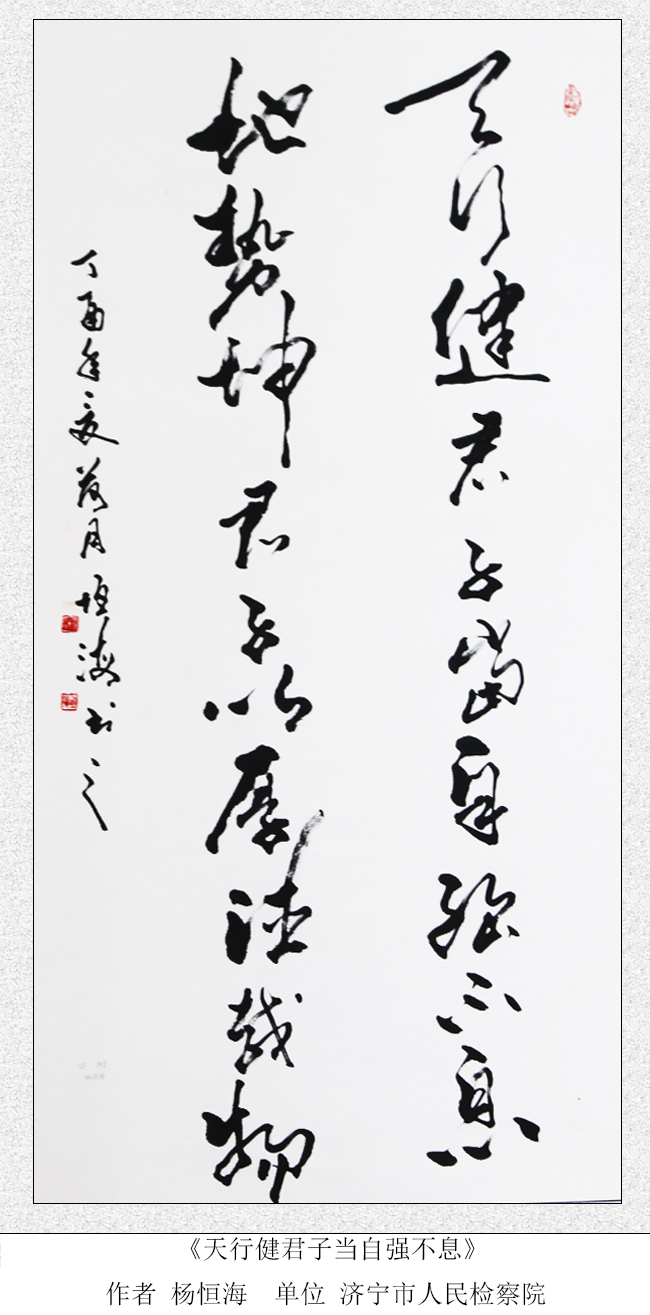 天行健君子當自強不息
地势坤君子以厚德载物
丁酉年夏荷月恒海书之
《天行健君子当自强不息》
作者 杨恒海 单位 济宁市人民检察院